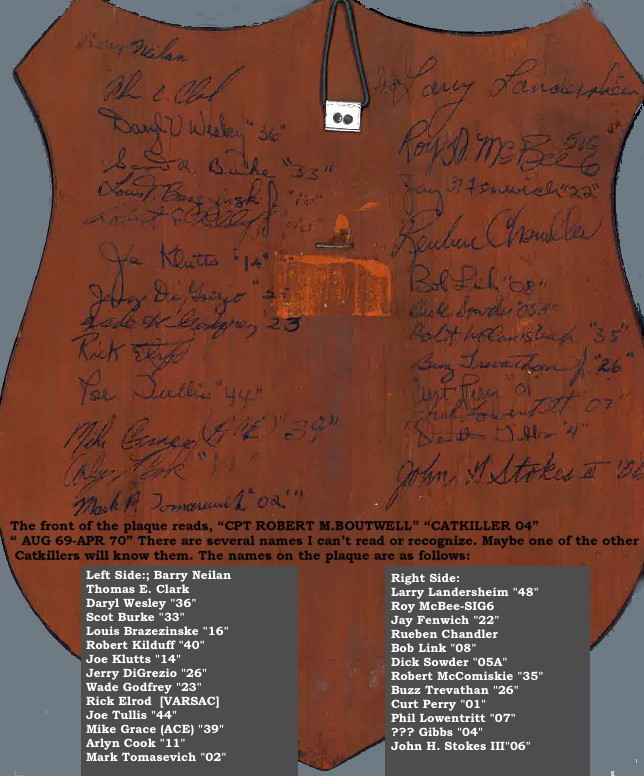 Barry Neilan
C. Clark
Daryl V Wesley "36"
Burke "33"
Joe Klutts "14"
Jerry DiGrezio
Wade W Godfrey 23
Rick Elrod
Joe Tullis "44"
Mike (ACE) "39"
Arlyn Cook "11"
Mark P. Tomasevich "02"
"48" Larry Landersheim
Roy D. McBee SIG 6
Jay Fenwich "22"
Reuben Chandler
Bob Link "08"
Dick Sowder "05A"
"35"
Buzz Trevathan Jr "26"
Curt Perry "01"
Phil Lowentritt "07"
John H Stokes III "06
The front of the plaque reads, “CPT ROBERT M.BOUTWELL” “CATKILLER 04”
“ AUG 69-APR 70” There are several names I can’t read or recognize. Maybe one of the other
Catkillers will know them. The names on the plaque are as follows:
Left Side:; Barry Neilan
Thomas E. Clark
Daryl Wesley "36"
Scot Burke "33"
Louis Brazezinske "16"
Robert Kilduff "40"
Joe Klutts "14"
Jerry DiGrezio "26"
Wade Godfrey "23"
Rick Elrod [VARSAC]
Joe Tullis "44"
Mike Grace (ACE) "39"
Arlyn Cook "11"
Mark Tomasevich "02"
Right Side:
Larry Landersheim "48"
Roy McBee-SIG6
Jay Fenwich "22"
Rueben Chandler
Bob Link "08"
Dick Sowder "05A"
Robert McComiskie "35"
Buzz Trevathan "26"
Curt Perry "01"
Phil Lowentritt "07"
??? Gibbs "04"
John H. Stokes III"06"